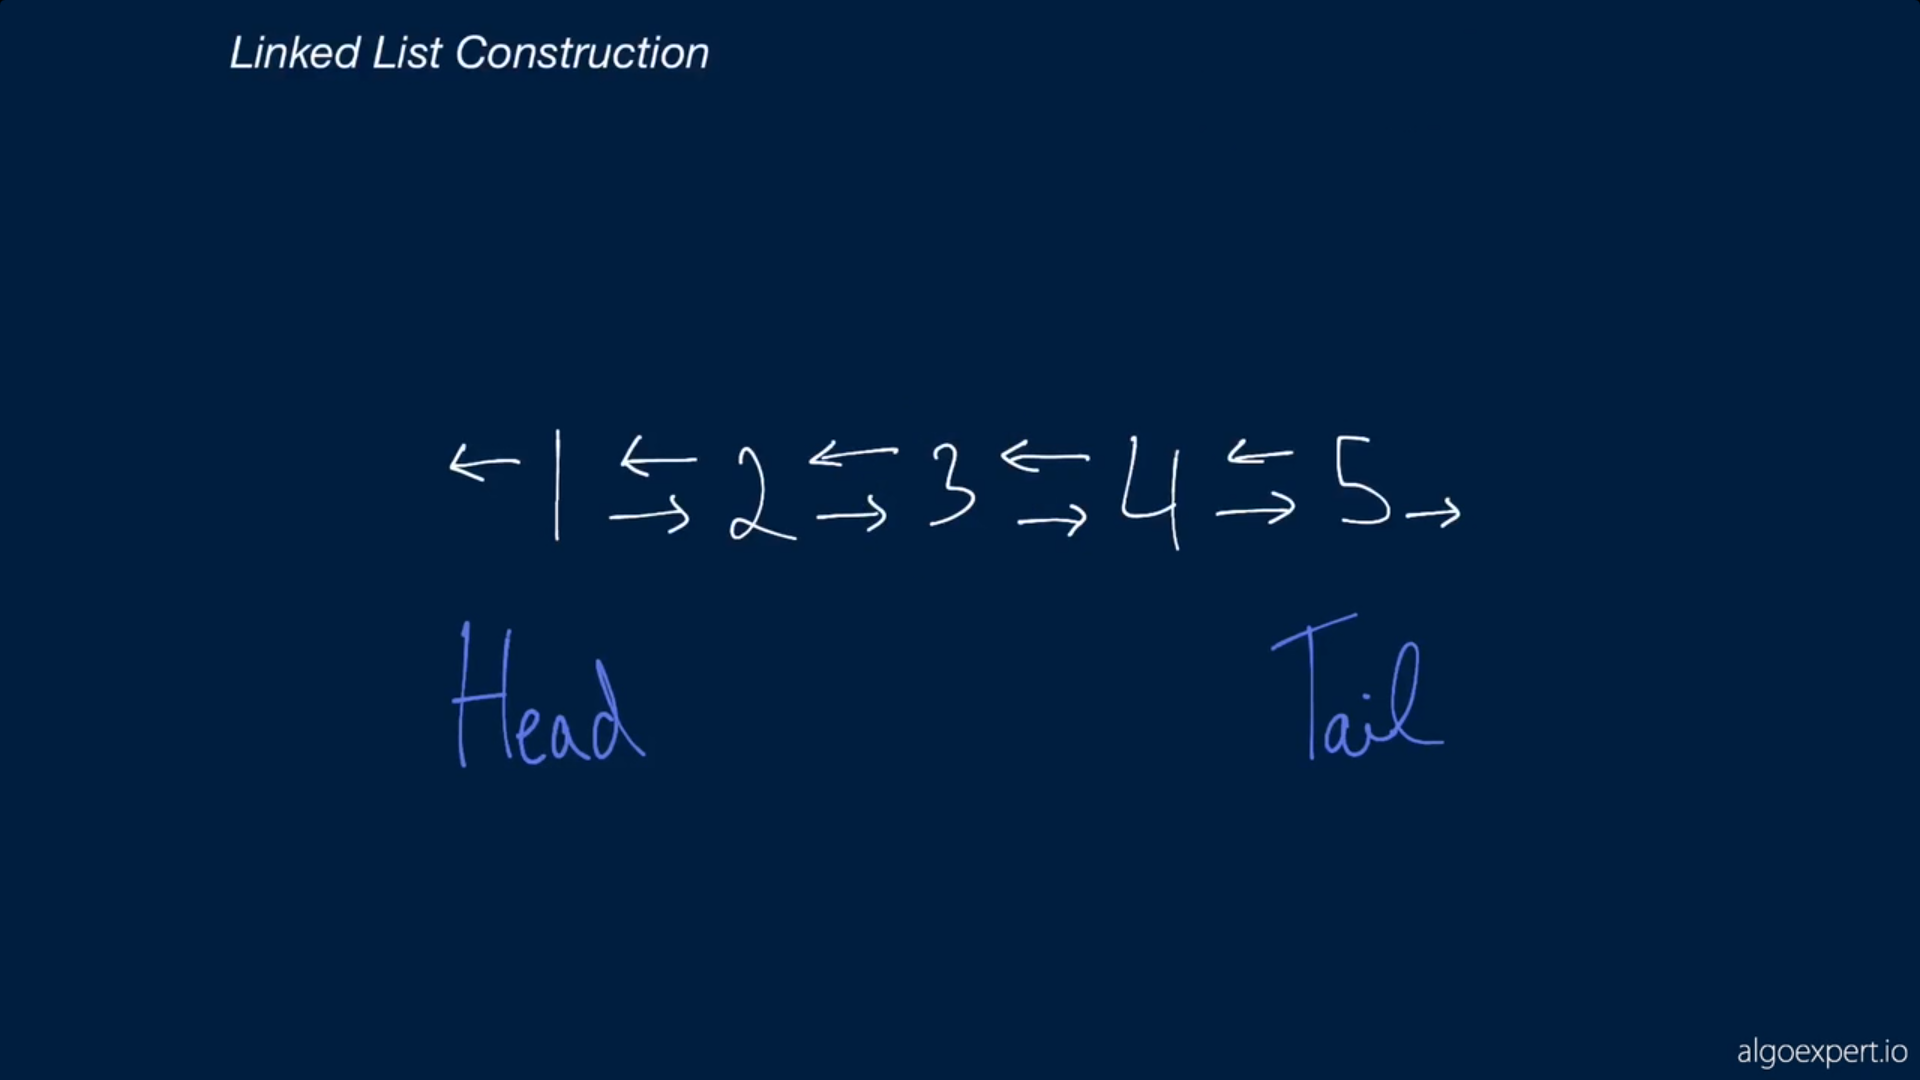 Linked List Construction
← 1 ← → 2 ← → 3 ← → 4 ← → 5 →
Head Tail
algoexpert.io